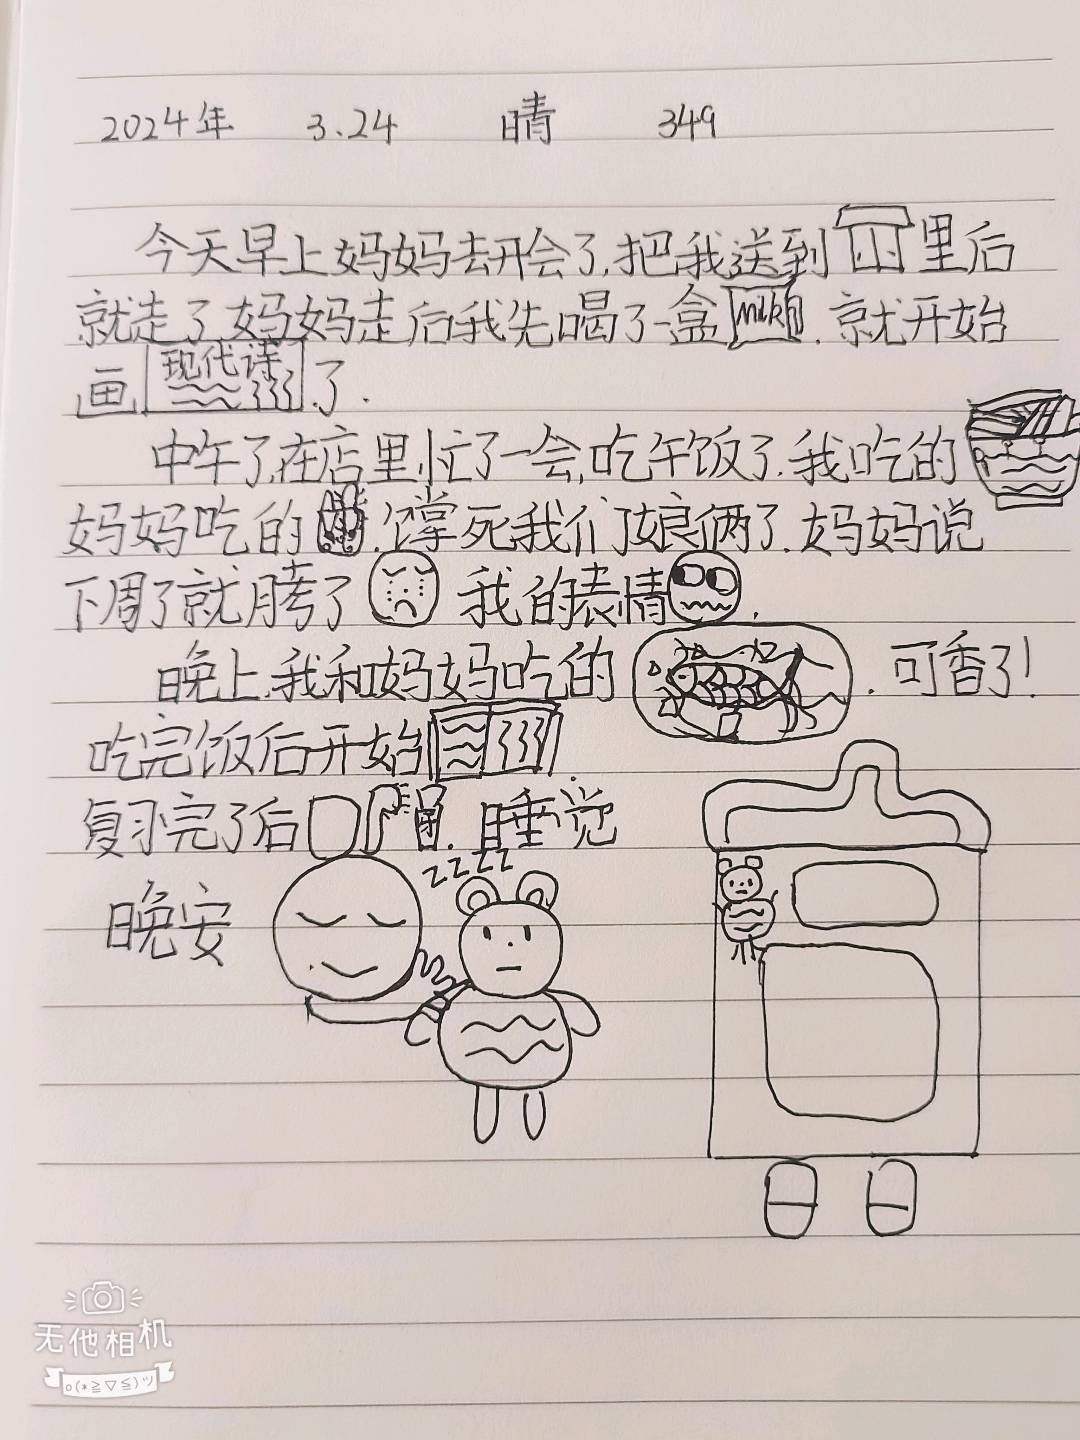 2024年 3.24 晴 349
今天早上妈妈去开会了,把我送到里后
就走了.妈妈走后我先喝了一盒milk.就开始
画现代诗了.
中午了,在店里忙了一会,吃午饭了.我吃的
妈妈吃的.撑死我们娘俩了.妈妈说
下周了就月考了 我的表情.
晚上.我和妈妈吃的.可香了!
吃完饭后开始.
复习完了后.睡觉
zzzz
晚安
无他相机
o(*≧▽≦)ツ